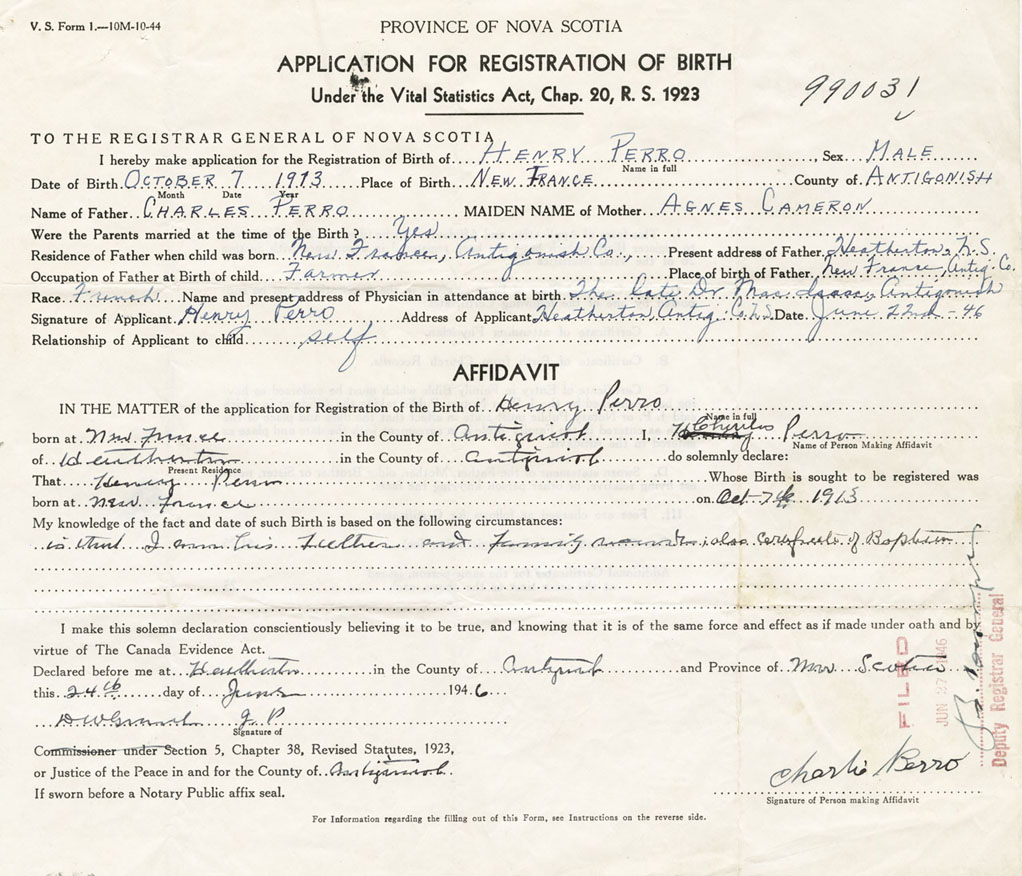 V. S. Form 1.—10M-10-44
PROVINCE OF NOVA SCOTIA
APPLICATION FOR REGISTRATION OF BIRTH
Under the Vital Statistics Act, Chap. 20, R. S. 1923
990031
TO THE REGISTRAR GENERAL OF NOVA SCOTIA
I hereby make application for the Registration of Birth of HENRY PERRO, Sex MALE
Name in full
Date of Birth OCTOBER 7 1913 Place of Birth NEW FRANCE County of ANTIGONISH
Month Date Year
Name of Father CHARLES PERRO MAIDEN NAME of Mother AGNES CAMERON
Were the Parents married at the time of the Birth? Yes
Residence of Father when child was born New France, Antigonish Co., Present address of Father Heatherton, N.S.
Occupation of Father at Birth of child Farmer Place of birth of Father New France, Antig. Co.
Race French Name and present address of Physician in attendance at birth The late Dr Mac Isaac, Antigonish
Signature of Applicant Henry Perro Address of Applicant Heatherton Antig. Co. Date June 22nd - 46
Relationship of Applicant to child self
AFFIDAVIT
IN THE MATTER of the application for Registration of the Birth of Henry Perro
Name in full
born at New France in the County of Antigonish I, Charles Perro
Name of Person Making Affidavit
of Heatherton in the County of Antigonish do solemnly declare:
Present Residence
That Henry Perro Whose Birth is sought to be registered was
born at New France on Oct 7th 1913
My knowledge of the fact and date of such Birth is based on the following circumstances:
is that I am his Father and Family records, also Certificate of Baptism
I make this solemn declaration conscientiously believing it to be true, and knowing that it is of the same force and effect as if made under oath and by
virtue of The Canada Evidence Act.
Declared before me at Heatherton in the County of Antigonish and Province of Nova Scotia
this 24th day of June 1946
J P
Signature of
Commissioner under Section 5, Chapter 38, Revised Statutes, 1923,
or Justice of the Peace in and for the County of Antigonish
If sworn before a Notary Public affix seal.
FILED
JUN 27 1946
Deputy Registrar General
Charlie Perro
Signature of Person making Affidavit
For Information regarding the filling out of this Form, see Instructions on the reverse side.